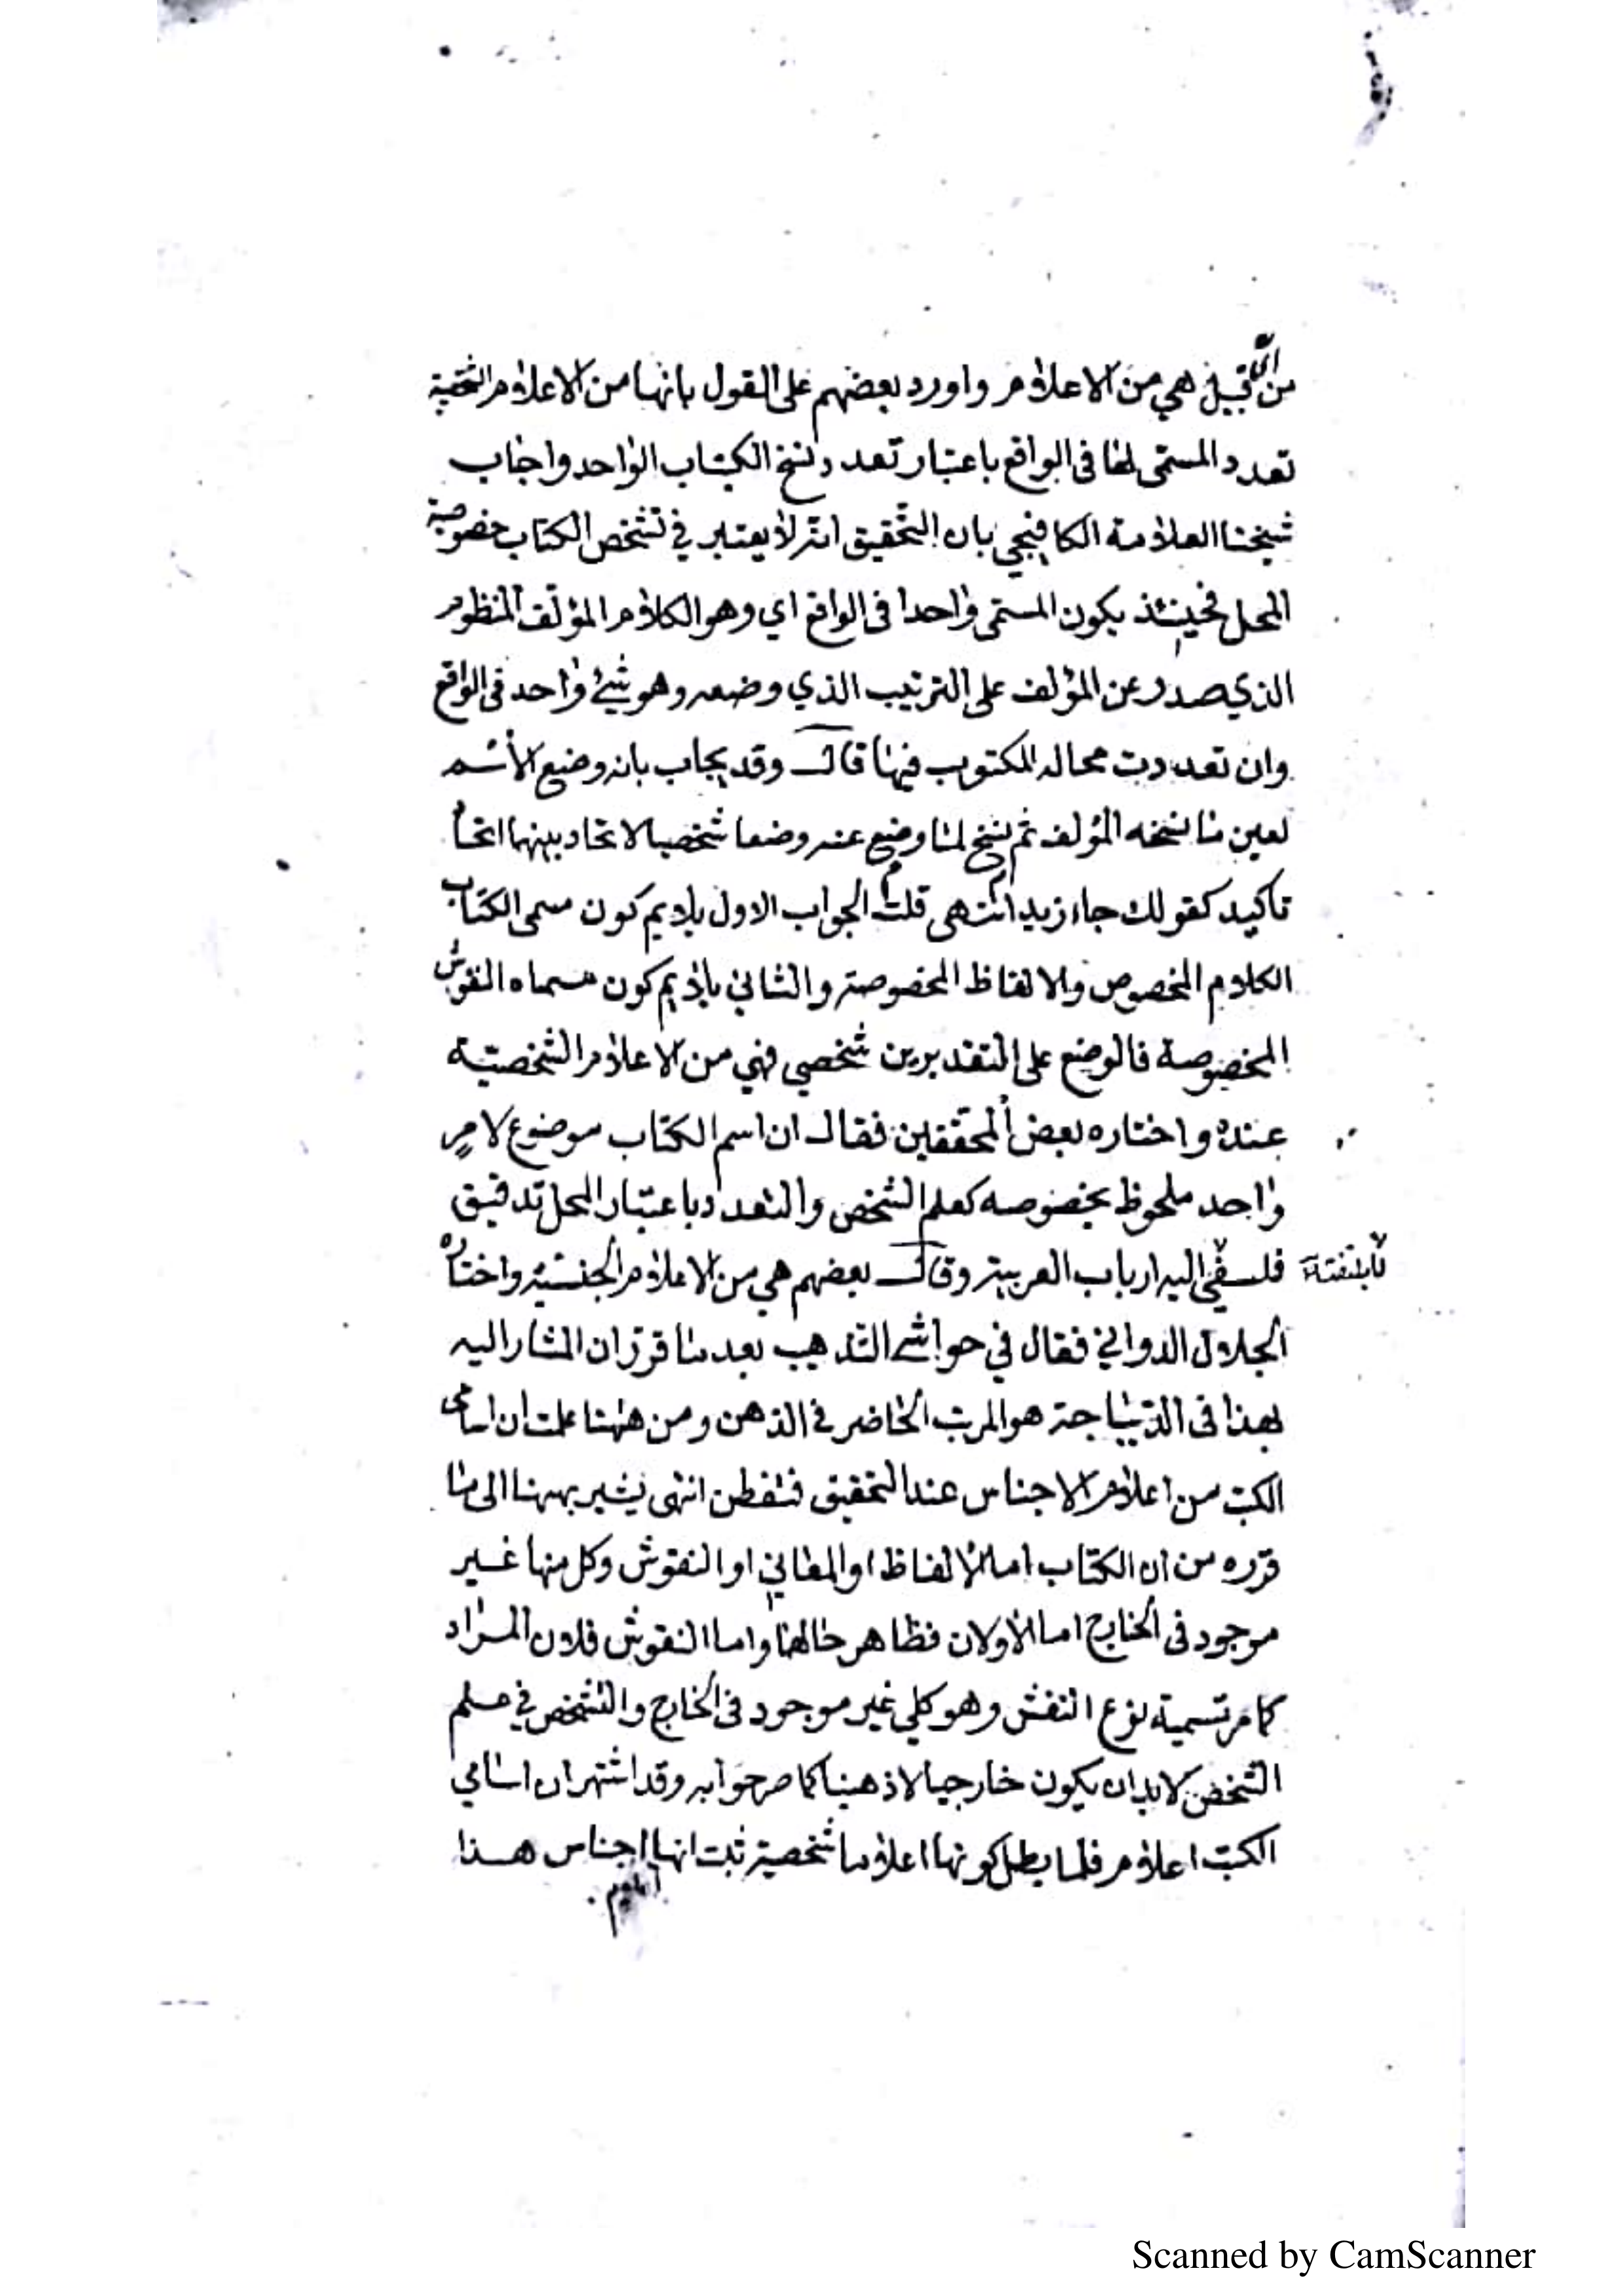 من اي قبيل هي من الاعلام واورد بعضهم على القول بانها من الاعلام الشخصية
تعدد المسمى لها في الواقع باعتبار تعدد نسخ الكتاب الواحد واجاب
شيخنا العلامة الكافيجي بان التحقيق انه لا يعتبر في تشخص الكتاب خصوصية
المحل فحينئذ يكون المسمى واحدا في الواقع اي وهو الكلام المؤلف المنظوم
الذي صدر عن المؤلف على الترتيب الذي وضعه وهو شيئ واحد في الواقع
وان تعددت محاله المكتوب فيها قال وقد يجاب بانه وضع الاسم
لعين ما نسخه المؤلف ثم نسخ لما وضع عنه وضعا شخصيا لاتحاد بينهما اتحاد
تاكيد كقولك جاء زيد انتهى قلت الجواب الاول يلايم كون مسمى الكتاب
الكلام المخصوص والالفاظ المخصوصة والثاني يلايم كون مسماه النقوش
المخصوصة فالوضع على التقديرين شخصي فهي من الاعلام الشخصية
عنده واختاره بعض المحققين فقال ان اسم الكتاب موضوع لامر
واحد ملحوظ بخصوصه كعلم الشخص والتعدد باعتبار المحل تدقيق
فلسفي اليه ارباب العربية وقال بعضهم هي من الاعلام الجنسية واختاره
لا يلتفت
الجلال الدواني فقال في حواشي التهذيب بعد ما قرر ان المشار اليه
بهذا في الديباجة هو المرتب الحاضر في الذهن ومن ههنا علمت ان اسامي
الكتب من اعلام الاجناس عند التحقيق فتفطن انتهى يشير بههنا الى ما
قرره من ان الكتاب اما الالفاظ او المعاني او النقوش وكل منها غير
موجود في الخارج اما الاولان فظاهر حالهما واما النقوش فلان المراد
كما مر تسمية نوع النقش وهو كلي غير موجود في الخارج والتشخص في علم
الشخص لا بد ان يكون خارجيا لا ذهنيا كما صرحوا به وقد اشتهر ان اسامي
الكتب اعلام فلما بطل كونها اعلاما شخصية ثبت انها اجناس هذا
اعلام
Scanned by CamScanner